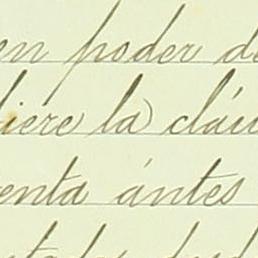 en poder de
diere la cláu
enta ántes